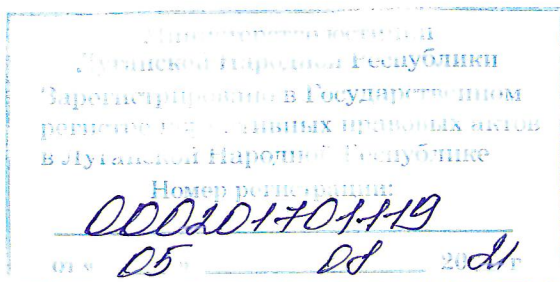 Министерство юстиции
Луганской Народной Республики
Зарегистрировано в Государственном
регистре нормативных правовых актов
в Луганской Народной Республике
Номер регистрации:
000201701119
от « 05 » 08 2021 г